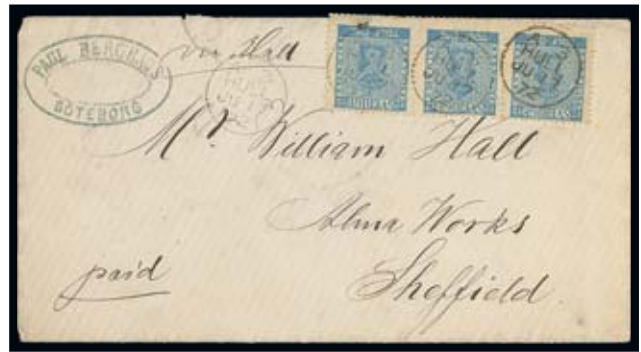 PAUL
GÖTEBORG
via Hull
HULL
JU 17
72
A
HULL
JU 17
72
Mr. William Hall
Alma Works
Sheffield.
paid